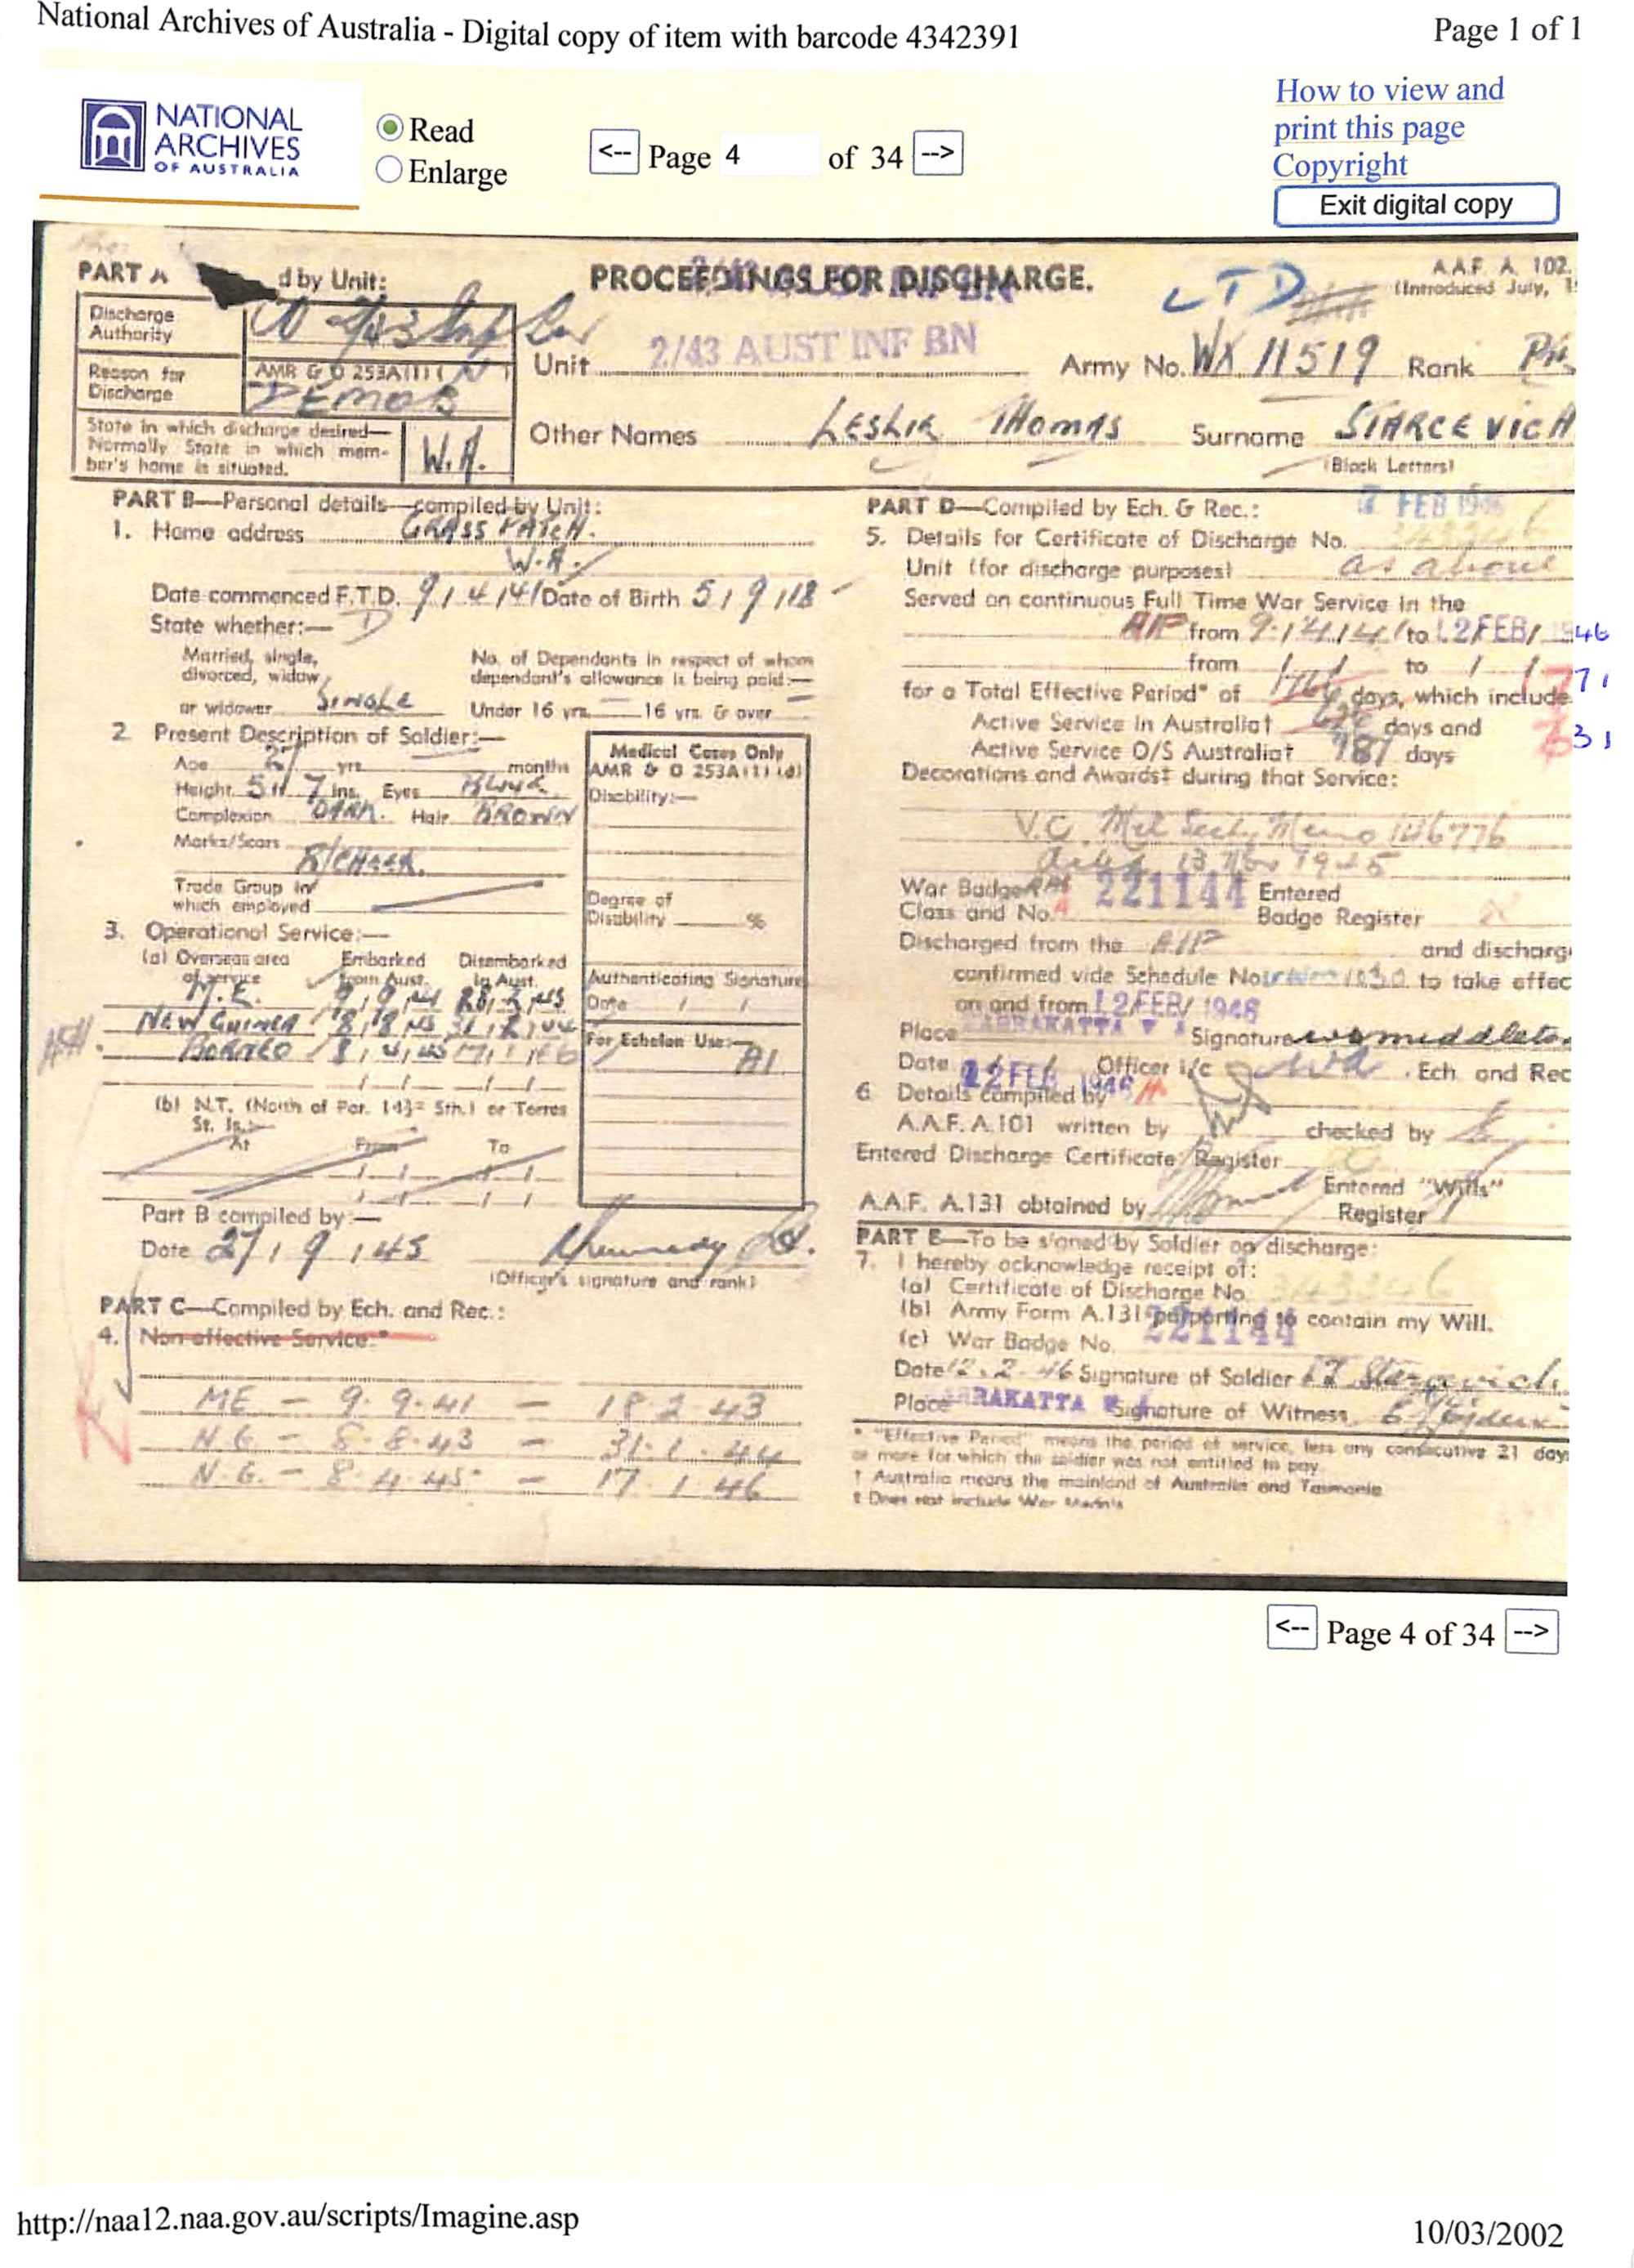 National Archives of Australia - Digital copy of item with barcode 4342391
Page 1 of 1
NATIONAL
ARCHIVES
OF AUSTRALIA
Read
Enlarge
<-- Page 4 of 34 -->
How to view and
print this page
Copyright
Exit digital copy
PART A d by Unit:
PROCEEDINGS FOR DISCHARGE.
A.A.F. A. 102.
(Introduced July,
LTD
Discharge
Authority
Reason for
Discharge
AMR & O 253A(1)(
DEMOB
State in which discharge desired—
Normally State in which mem-
ber's home is situated.
W.A.
Unit 2/43 AUST INF BN
Army No. WX 11519 Rank
Other Names LESLIE THOMAS Surname STARCEVICH
(Block Letters)
PART B—Personal details—compiled by Unit:
1. Home address GRASS PATCH.
W.A.
Date commenced F.T.D. 9/4/41 Date of Birth 5/9/18
State whether:—
Married, single,
divorced, widow,
or widower SINGLE
No. of Dependants in respect of whom
dependant's allowance is being paid:—
Under 16 yrs. — 16 yrs. & over —
2 Present Description of Soldier:—
Age 27 yrs. months
Height 5 ft 7 ins. Eyes
Complexion DARK. Hair BROWN
Marks/Scars
R/CHEEK.
Trade Group in
which employed
Medical Cases Only
AMR & O 253A(1)(d)
Disability:—
Degree of
Disability %
Authenticating Signature
Date / /
For Echelon Use:—
A1
3. Operational Service:—
(a) Overseas area
of service
Embarked
from Aust.
Disembarked
in Aust.
M.E. 9/9/41
NEW GUINEA 8/8/43
BORNEO 8/4/45 17/1/46
(b) N.T. (North of Par. 14½° Sth.) or Torres
St. Is.:—
At From To
Part B compiled by:—
Date 27/9/45
Kennedy
(Officer's signature and rank)
PART C—Compiled by Ech. and Rec.:
4. Non-effective Service:*
ME — 9.9.41 — 18 2 43
N.G — 8.8.43 — 31.1.44
N.G. — 8.4.45 — 17.1.46
PART D—Compiled by Ech. & Rec.:
FEB 1946
5. Details for Certificate of Discharge No.
Unit (for discharge purposes) as above
Served on continuous Full Time War Service in the
AIF from 9/4/41 to 12 FEB 1946
from / / to / /
for a Total Effective Period* of days, which include
Active Service in Australia† days and
Active Service O/S Australia† 981 days
Decorations and Awards‡ during that Service:
V.C. Mil Secty Memo 146776
13 Nov 1945
War Badge
Class and No. 221144 Entered
Badge Register
Discharged from the AIF and discharg
confirmed vide Schedule No. to take effec
on and from 12 FEB 1946
Place Signature
Date 12 FEB 1946 Officer i/c Ech. and Rec
6 Details compiled by
A.A.F. A.101 written by checked by
Entered Discharge Certificate Register
A.A.F. A.131 obtained by Entered "Wills"
Register
PART E—To be signed by Soldier on discharge:
7. I hereby acknowledge receipt of:
(a) Certificate of Discharge No.
(b) Army Form A.131 purporting to contain my Will.
(c) War Badge No. 221144
Date 12.2.46 Signature of Soldier L T Starcevich
Place Signature of Witness
* "Effective Period" means the period of service, less any consecutive 21 day
or more for which the soldier was not entitled to pay
† Australia means the mainland of Australia and Tasmania
‡ Does not include War Medals
<-- Page 4 of 34 -->
http://naa12.naa.gov.au/scripts/Imagine.asp
10/03/2002